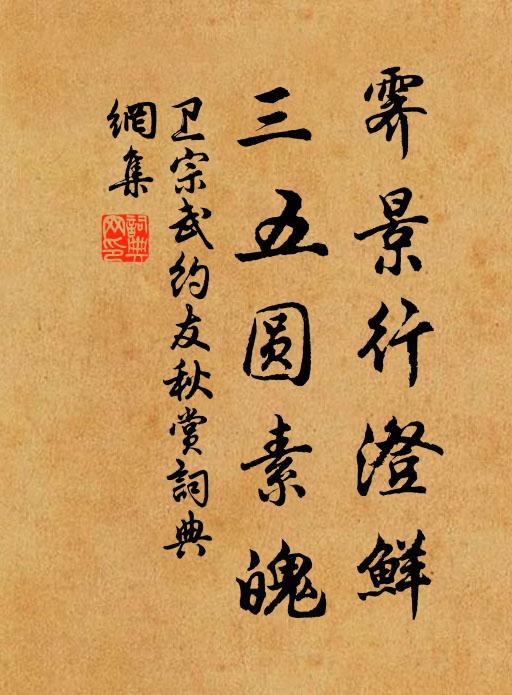 霁景行澄鲜
三五圆素魄
卫宗武约友秋赏詞典
網集
詞典
网印